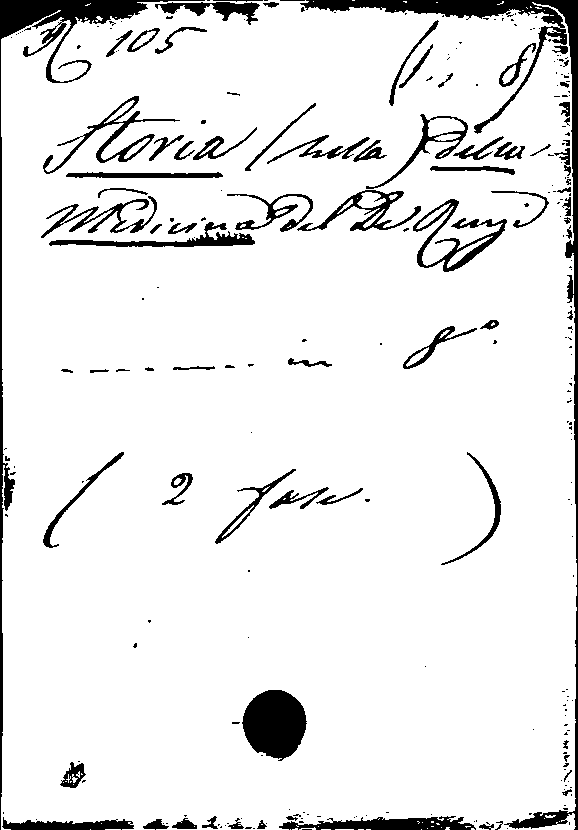 N. 105
(in 8)
Storia (sulla) della
Medicina del De. Renzi
in 8º
( 2 fasc. )